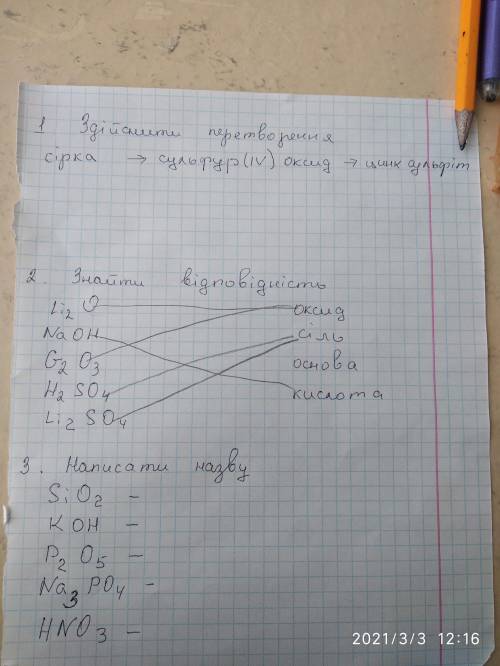 1 Здійснити перетворення
сірка → сульфур (IV) оксид → цинк сульфіт
2. Знайти відповідність
Li2 O оксид
Na OH сіль
G2 O3 основа
H2 SO4 кислота
Li2 SO4
3. Написати назву
SiO2 -
KOH -
P2 O5 -
Na3 PO4 -
HNO3 -
2021/3/3 12:16